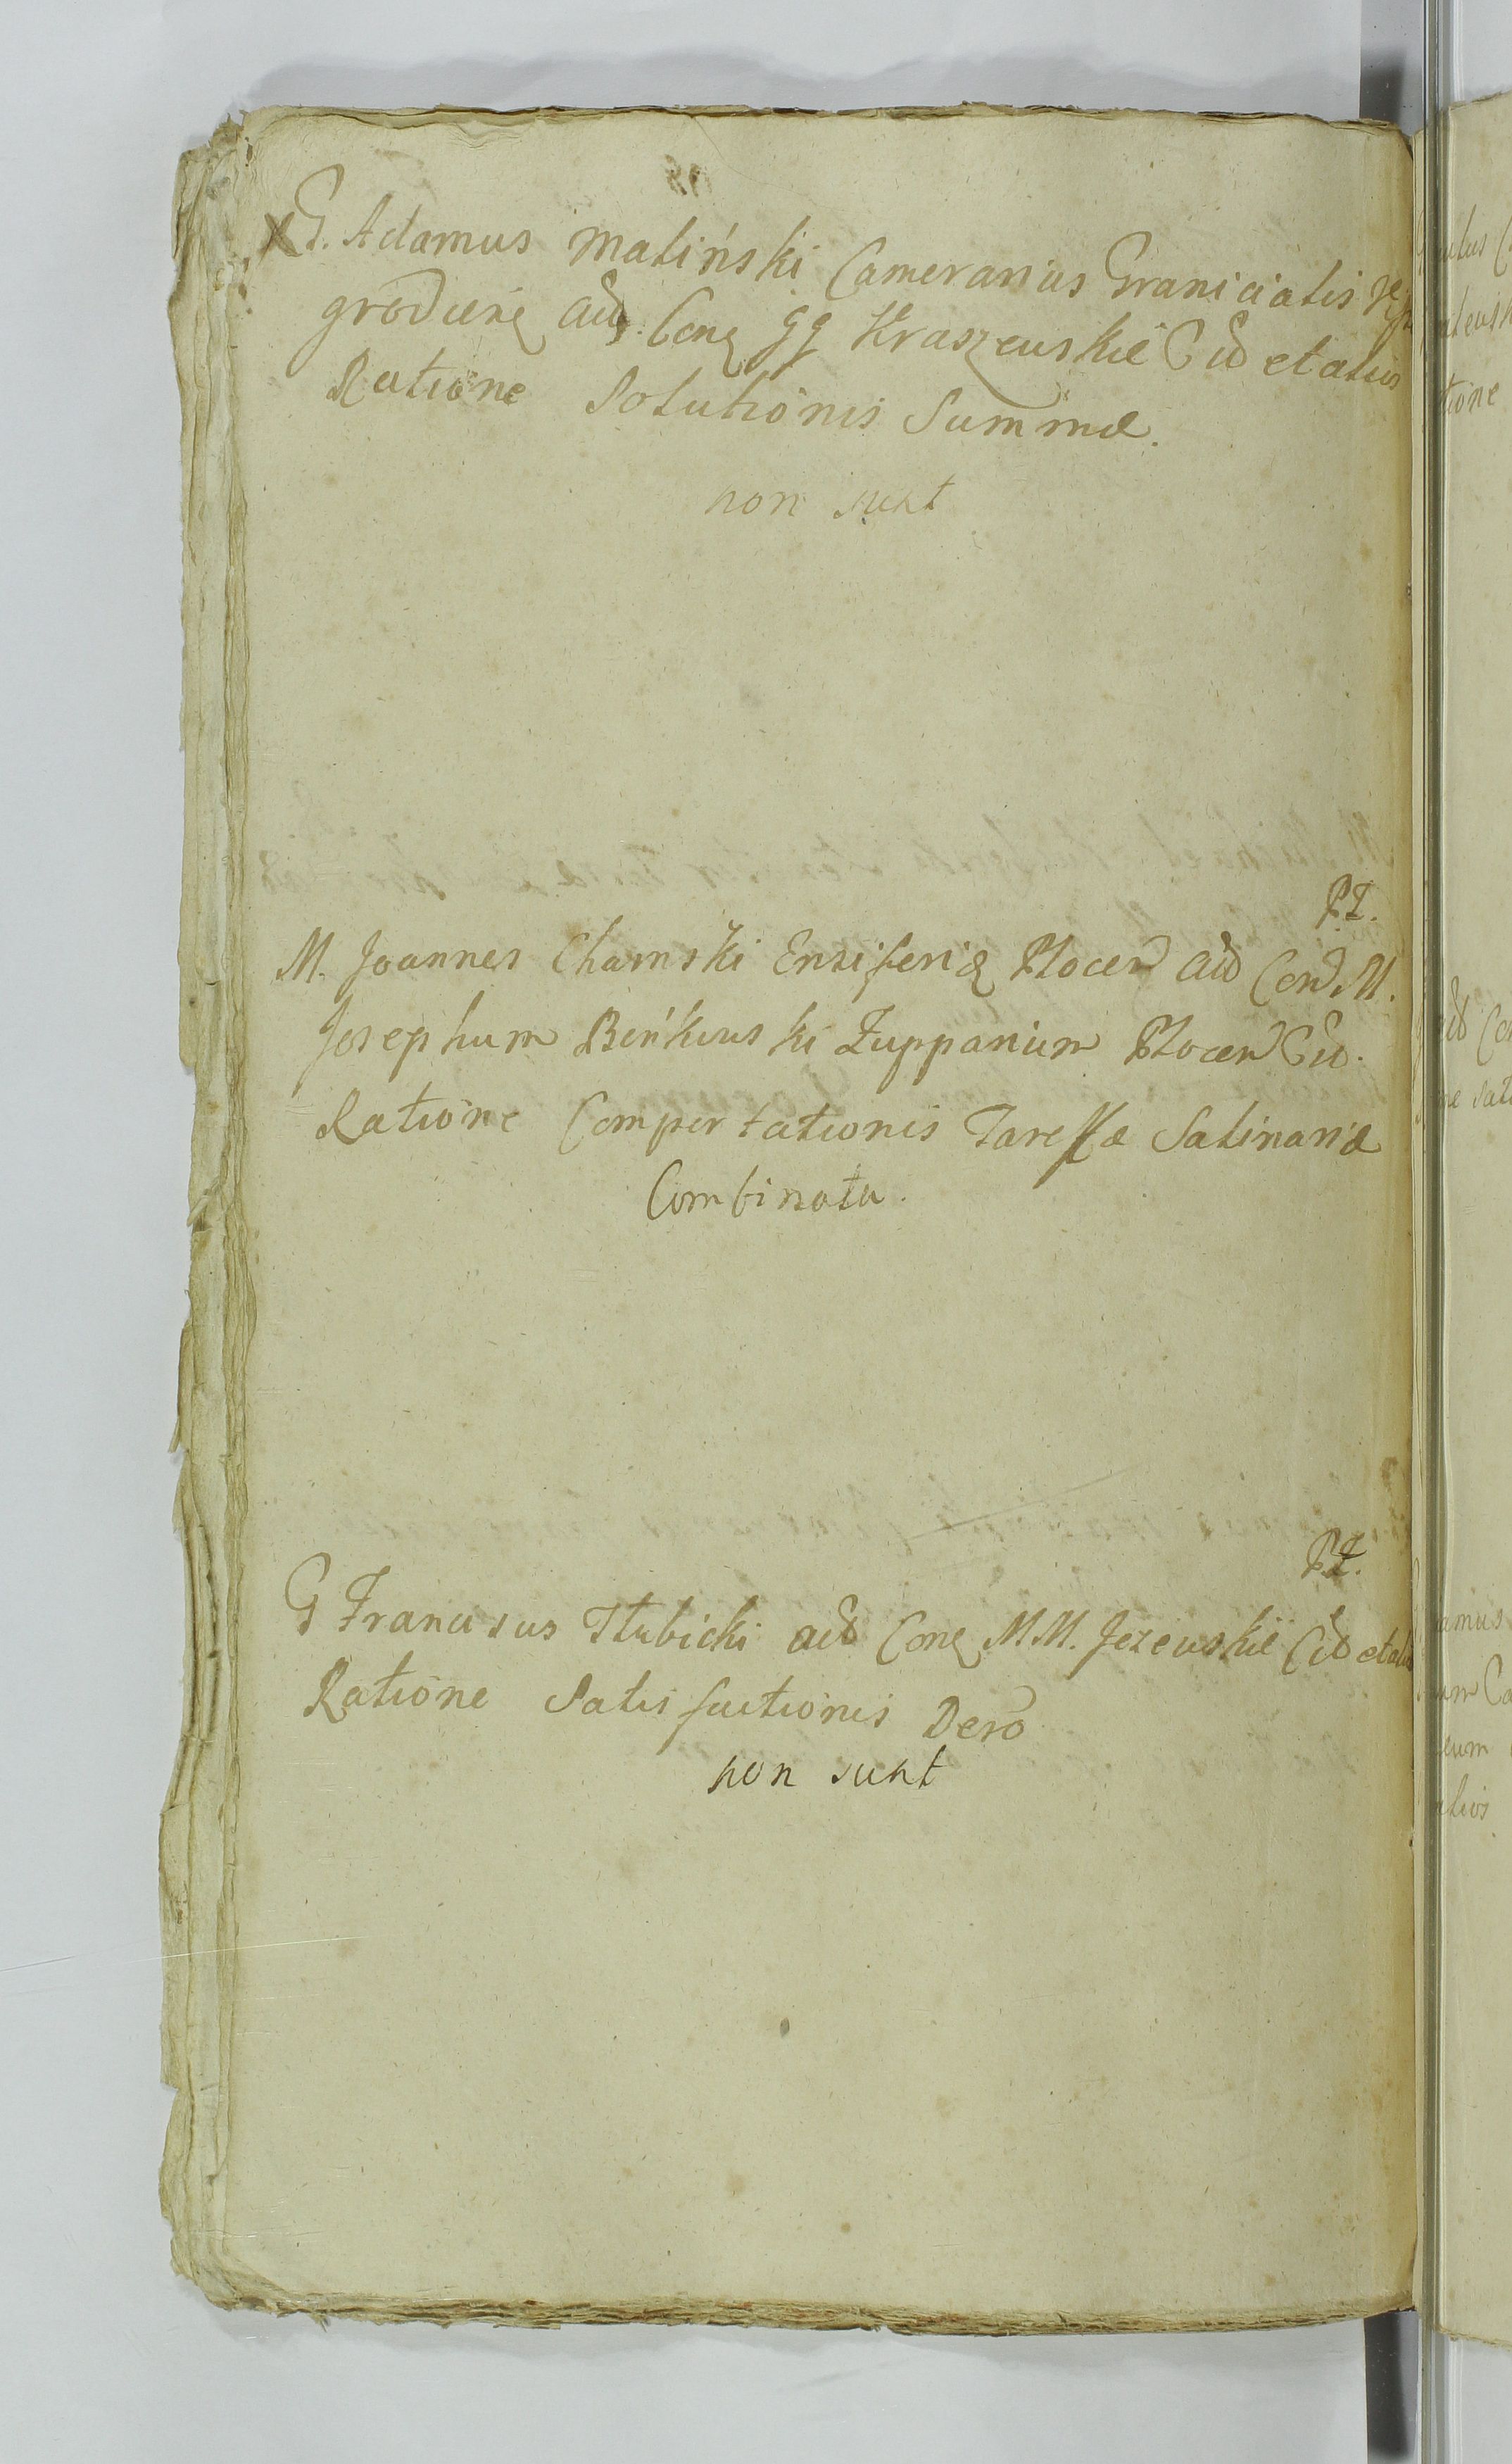 X G. Adamus Maliński Camerarius Graniciatis
grodiens ad Cong GG Kraszewskie Cid et alios
Ratione Solutionis Summæ.
non sunt
P.Z.
M. Joannes Chamski Ensiferig Plocen ad Con M.
Josephum Bieńkuski Zupparium Plocen Cid.
Ratione Comportationis Tareffæ Salinariæ
Combinata.
P.Z.
G Franciscus Tłubicki ad Cong M.M. Jezewskie Cid et alios
Ratione Satisfactionis Dero
non sunt